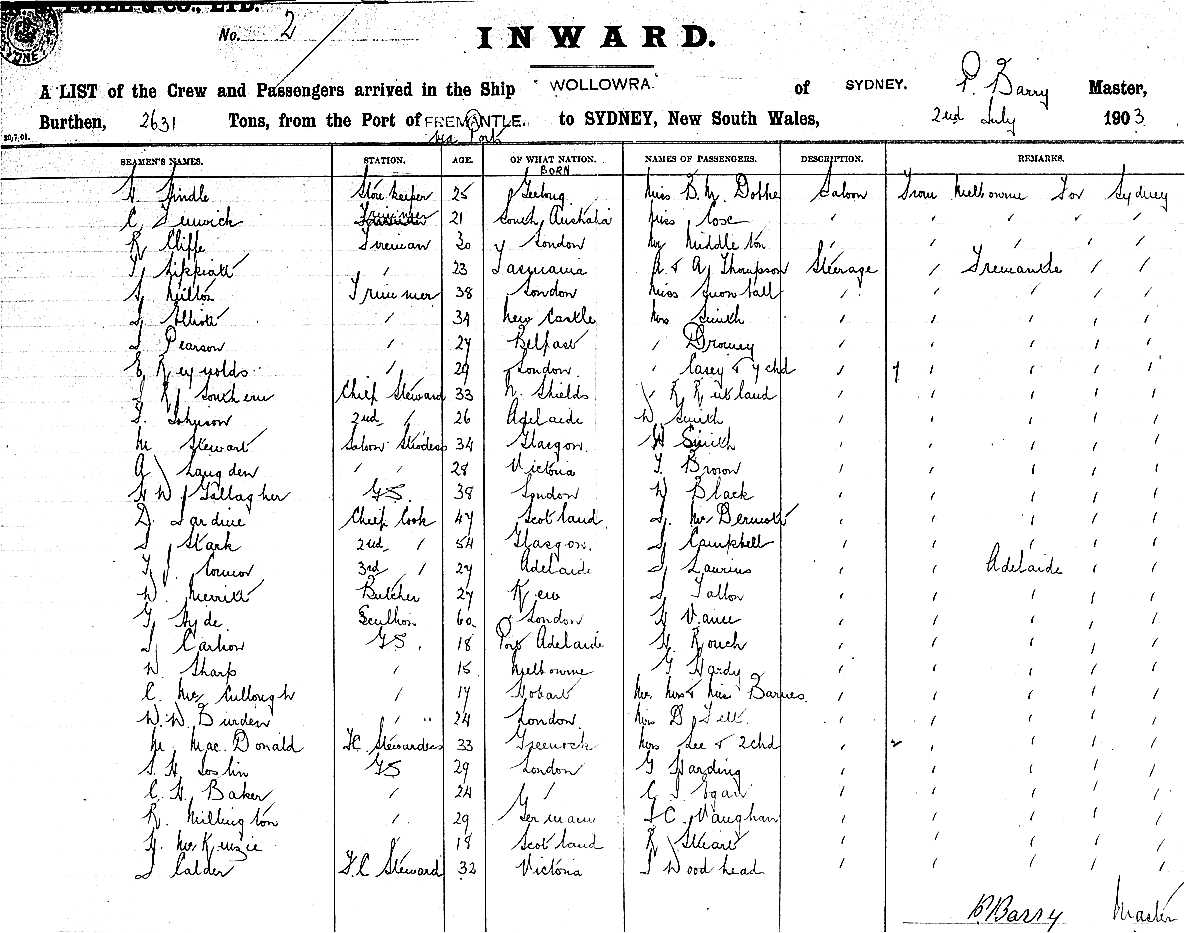 & CO., LTD.
No. 2
INWARD.
A LIST of the Crew and Passengers arrived in the Ship "WOLLOWRA" of SYDNEY. P. Barry Master,
Burthen, 2631 Tons, from the Port of FREMANTLE. to SYDNEY, New South Wales, 2nd July 1903
via Ports
SEAMEN'S NAMES. STATION. AGE. OF WHAT NATION. NAMES OF PASSENGERS. DESCRIPTION. REMARKS.
BORN
Storekeeper 25 Geelong Miss Saloon From Melbourne For Sydney
C Fenwick Trimmer 21 South Australia Miss Cose " " " "
R Cliffe Fireman 30 London Mr Middleton " " " "
" 23 Tasmania A & A Thompson Steerage " Fremantle " "
Milton Trimmer 38 London Miss " " " " "
Elliott " 34 New Castle Mrs Smith " " " " "
J Pearson " 27 Belfast " " " " " "
E Reynolds " 29 London " Casey & chd " " " " "
Southern Chief Steward 33 N. Shields R Rutland " " " " "
Johnson 2nd " 26 Adelaide W Smith " " " " "
M Stewart Saloon 34 Glasgow H Smith " " " " "
A Langden " " 28 Victoria T. Brown " " " " "
H W Gallagher GS. 38 London W Black " " " " "
D. Jardine Chief Cook 47 Scotland J. McDermott " " " " "
J Stark 2nd " 54 Glasgow J Campbell " " " " "
Connor 3rd " 27 Adelaide J " " Adelaide " "
W. Merritt Butcher 27 Kew J " " " " "
G Hyde Scullion 60 London Vance " " " " "
J Carlton GS. 18 Port Adelaide H. Rouch " " " " "
W Sharp " 15 Melbourne G Hardy " " " " "
C McCullough " 17 Hobart Mr, Mrs & Miss Barnes " " " " "
W. W. Burden " " 24 London Miss B " " " " "
M MacDonald F.C. Stewardess 33 Greenock Mrs Lee & 2 chd " 2 " " " "
S. H. Joslin GS 29 London G Harding " " " " "
C. H. Baker " 24 " C J Egan " " " " "
R. Millington " 29 J C. Vaughan " " " " "
G. McKenzie 18 Scotland R Stuart " " " " "
J Calder F.C Steward 32 Victoria J Woodhead " " " " "
P. Barry Master